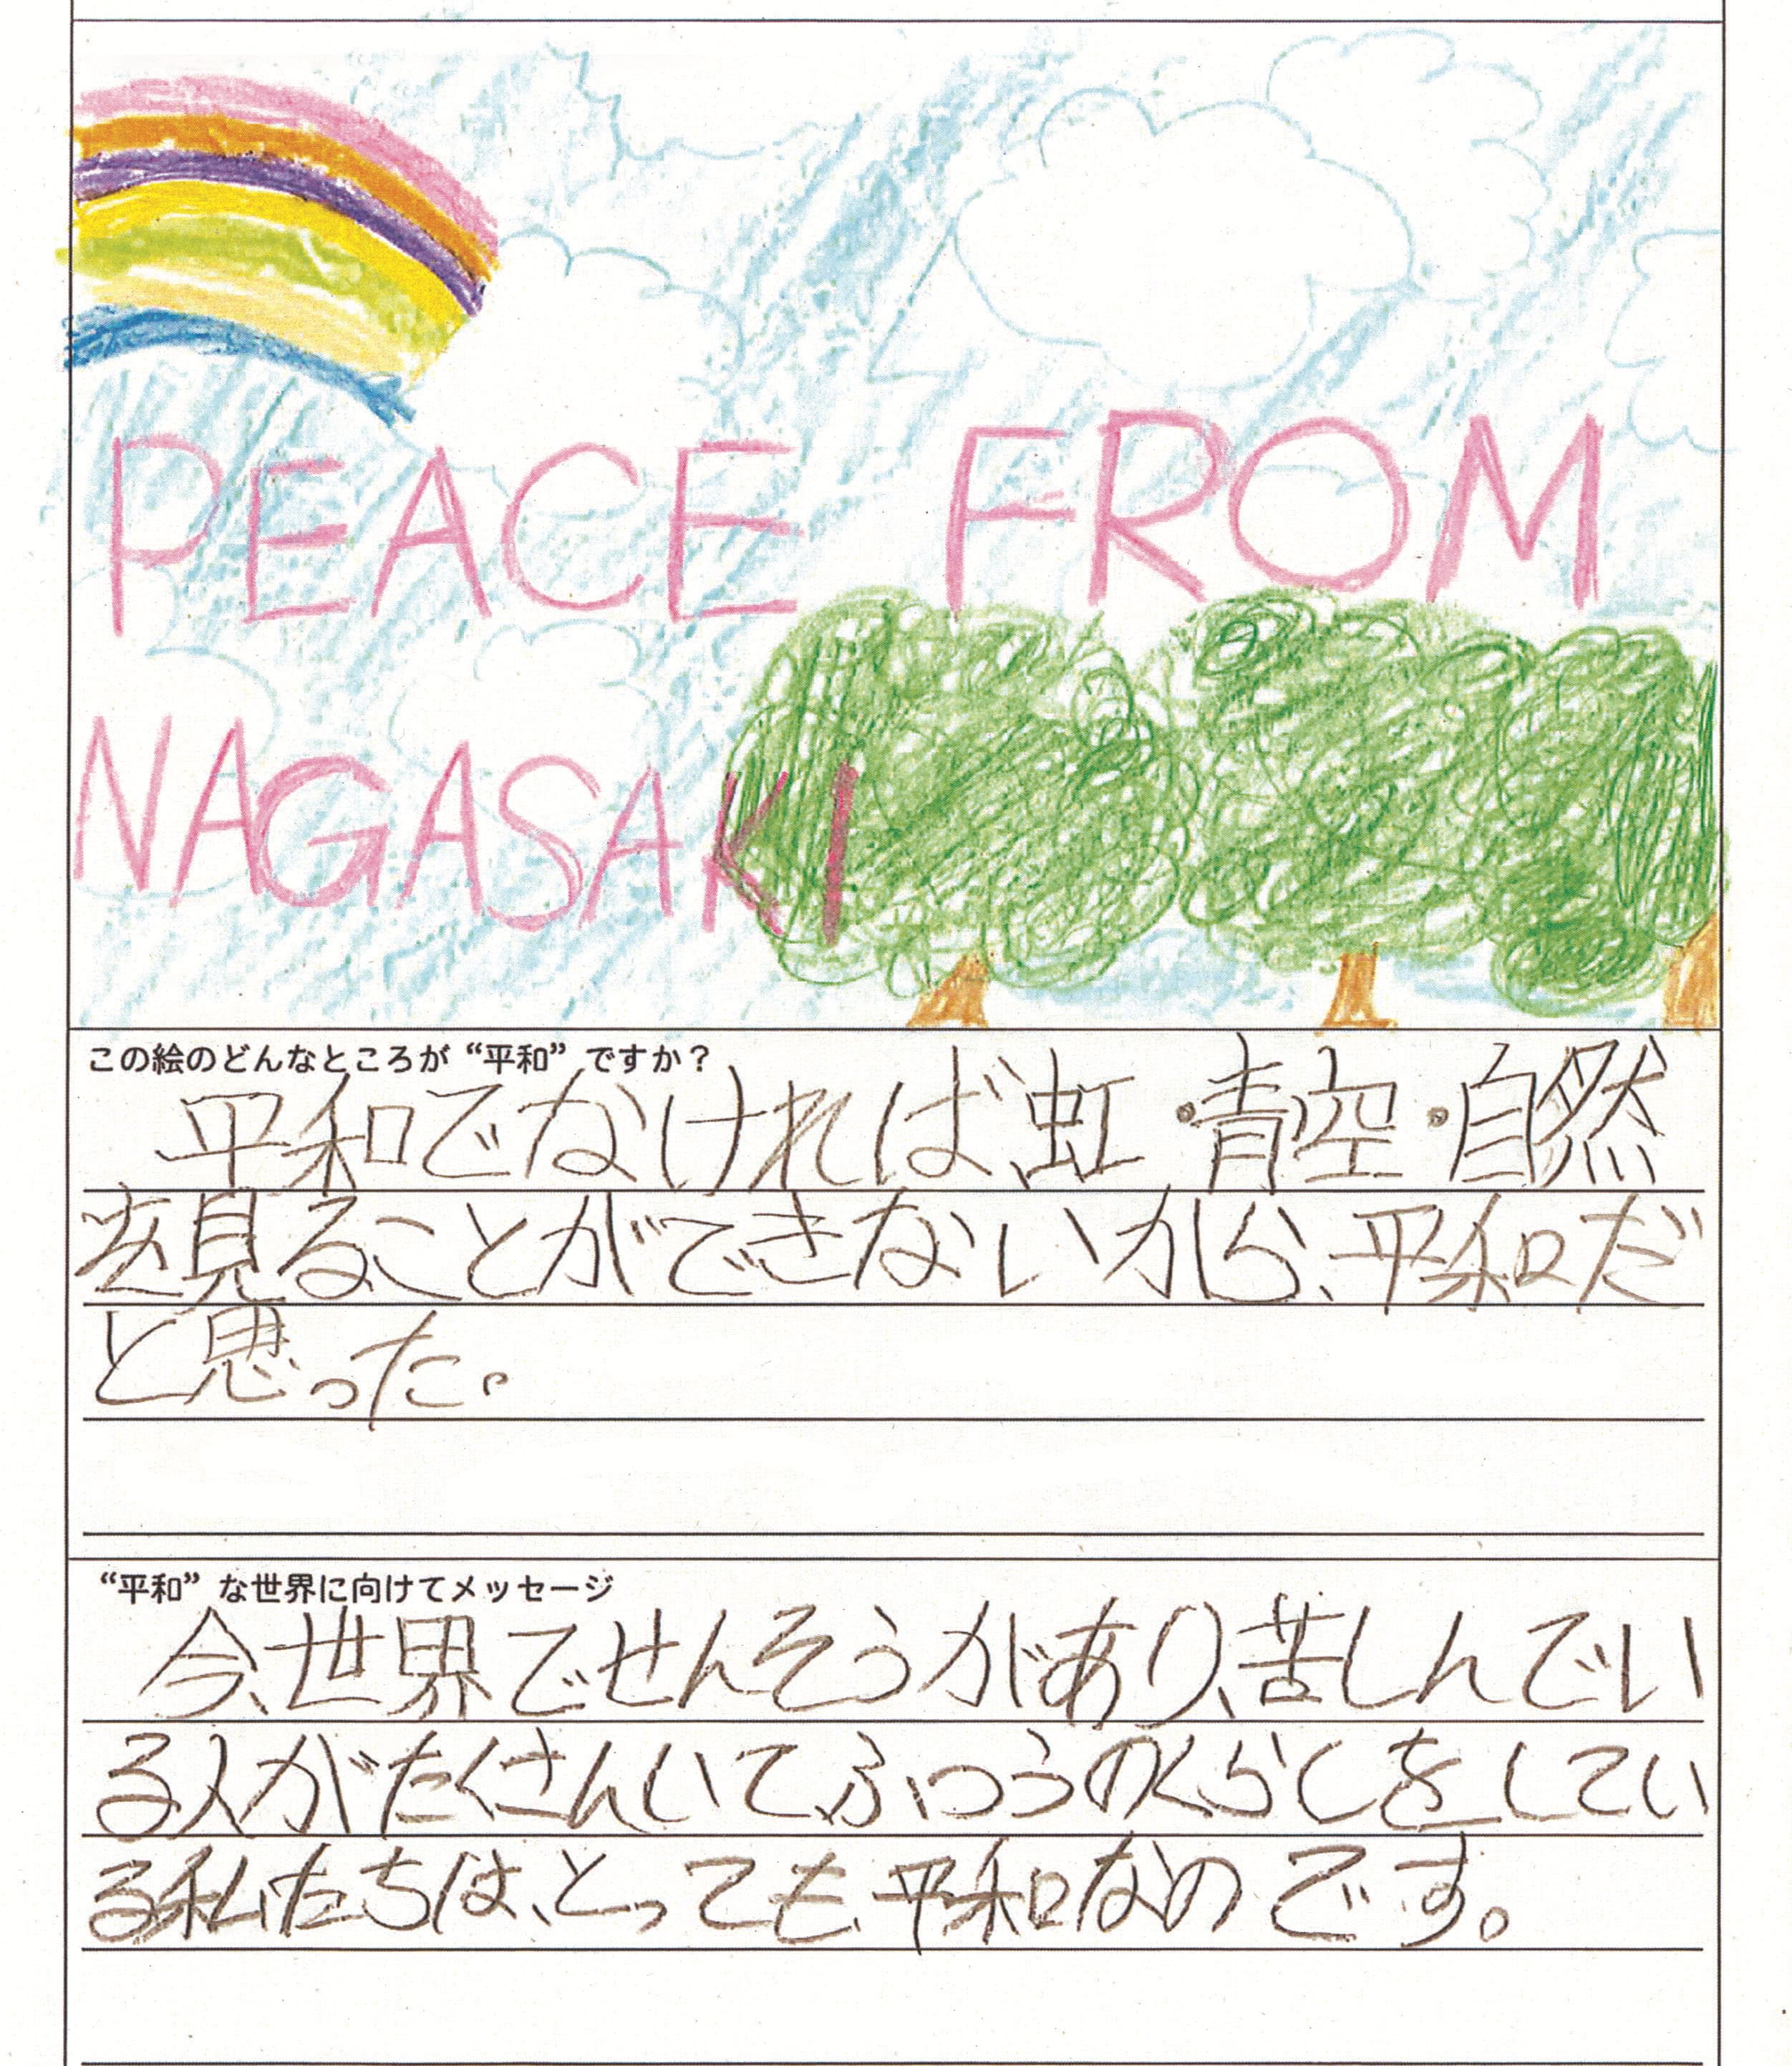 PEACE FROM
NAGASAKI
この絵のどんなところが“平和”ですか？
平和でなければ、虹・青空・自然
を見ることができないから、平和だ
と思った。
“平和”な世界に向けてメッセージ
今、世界でせんそうがあり、苦しんでい
る人がたくさんいてふつうのくらしをしてい
る私たちは、とっても平和なのです。